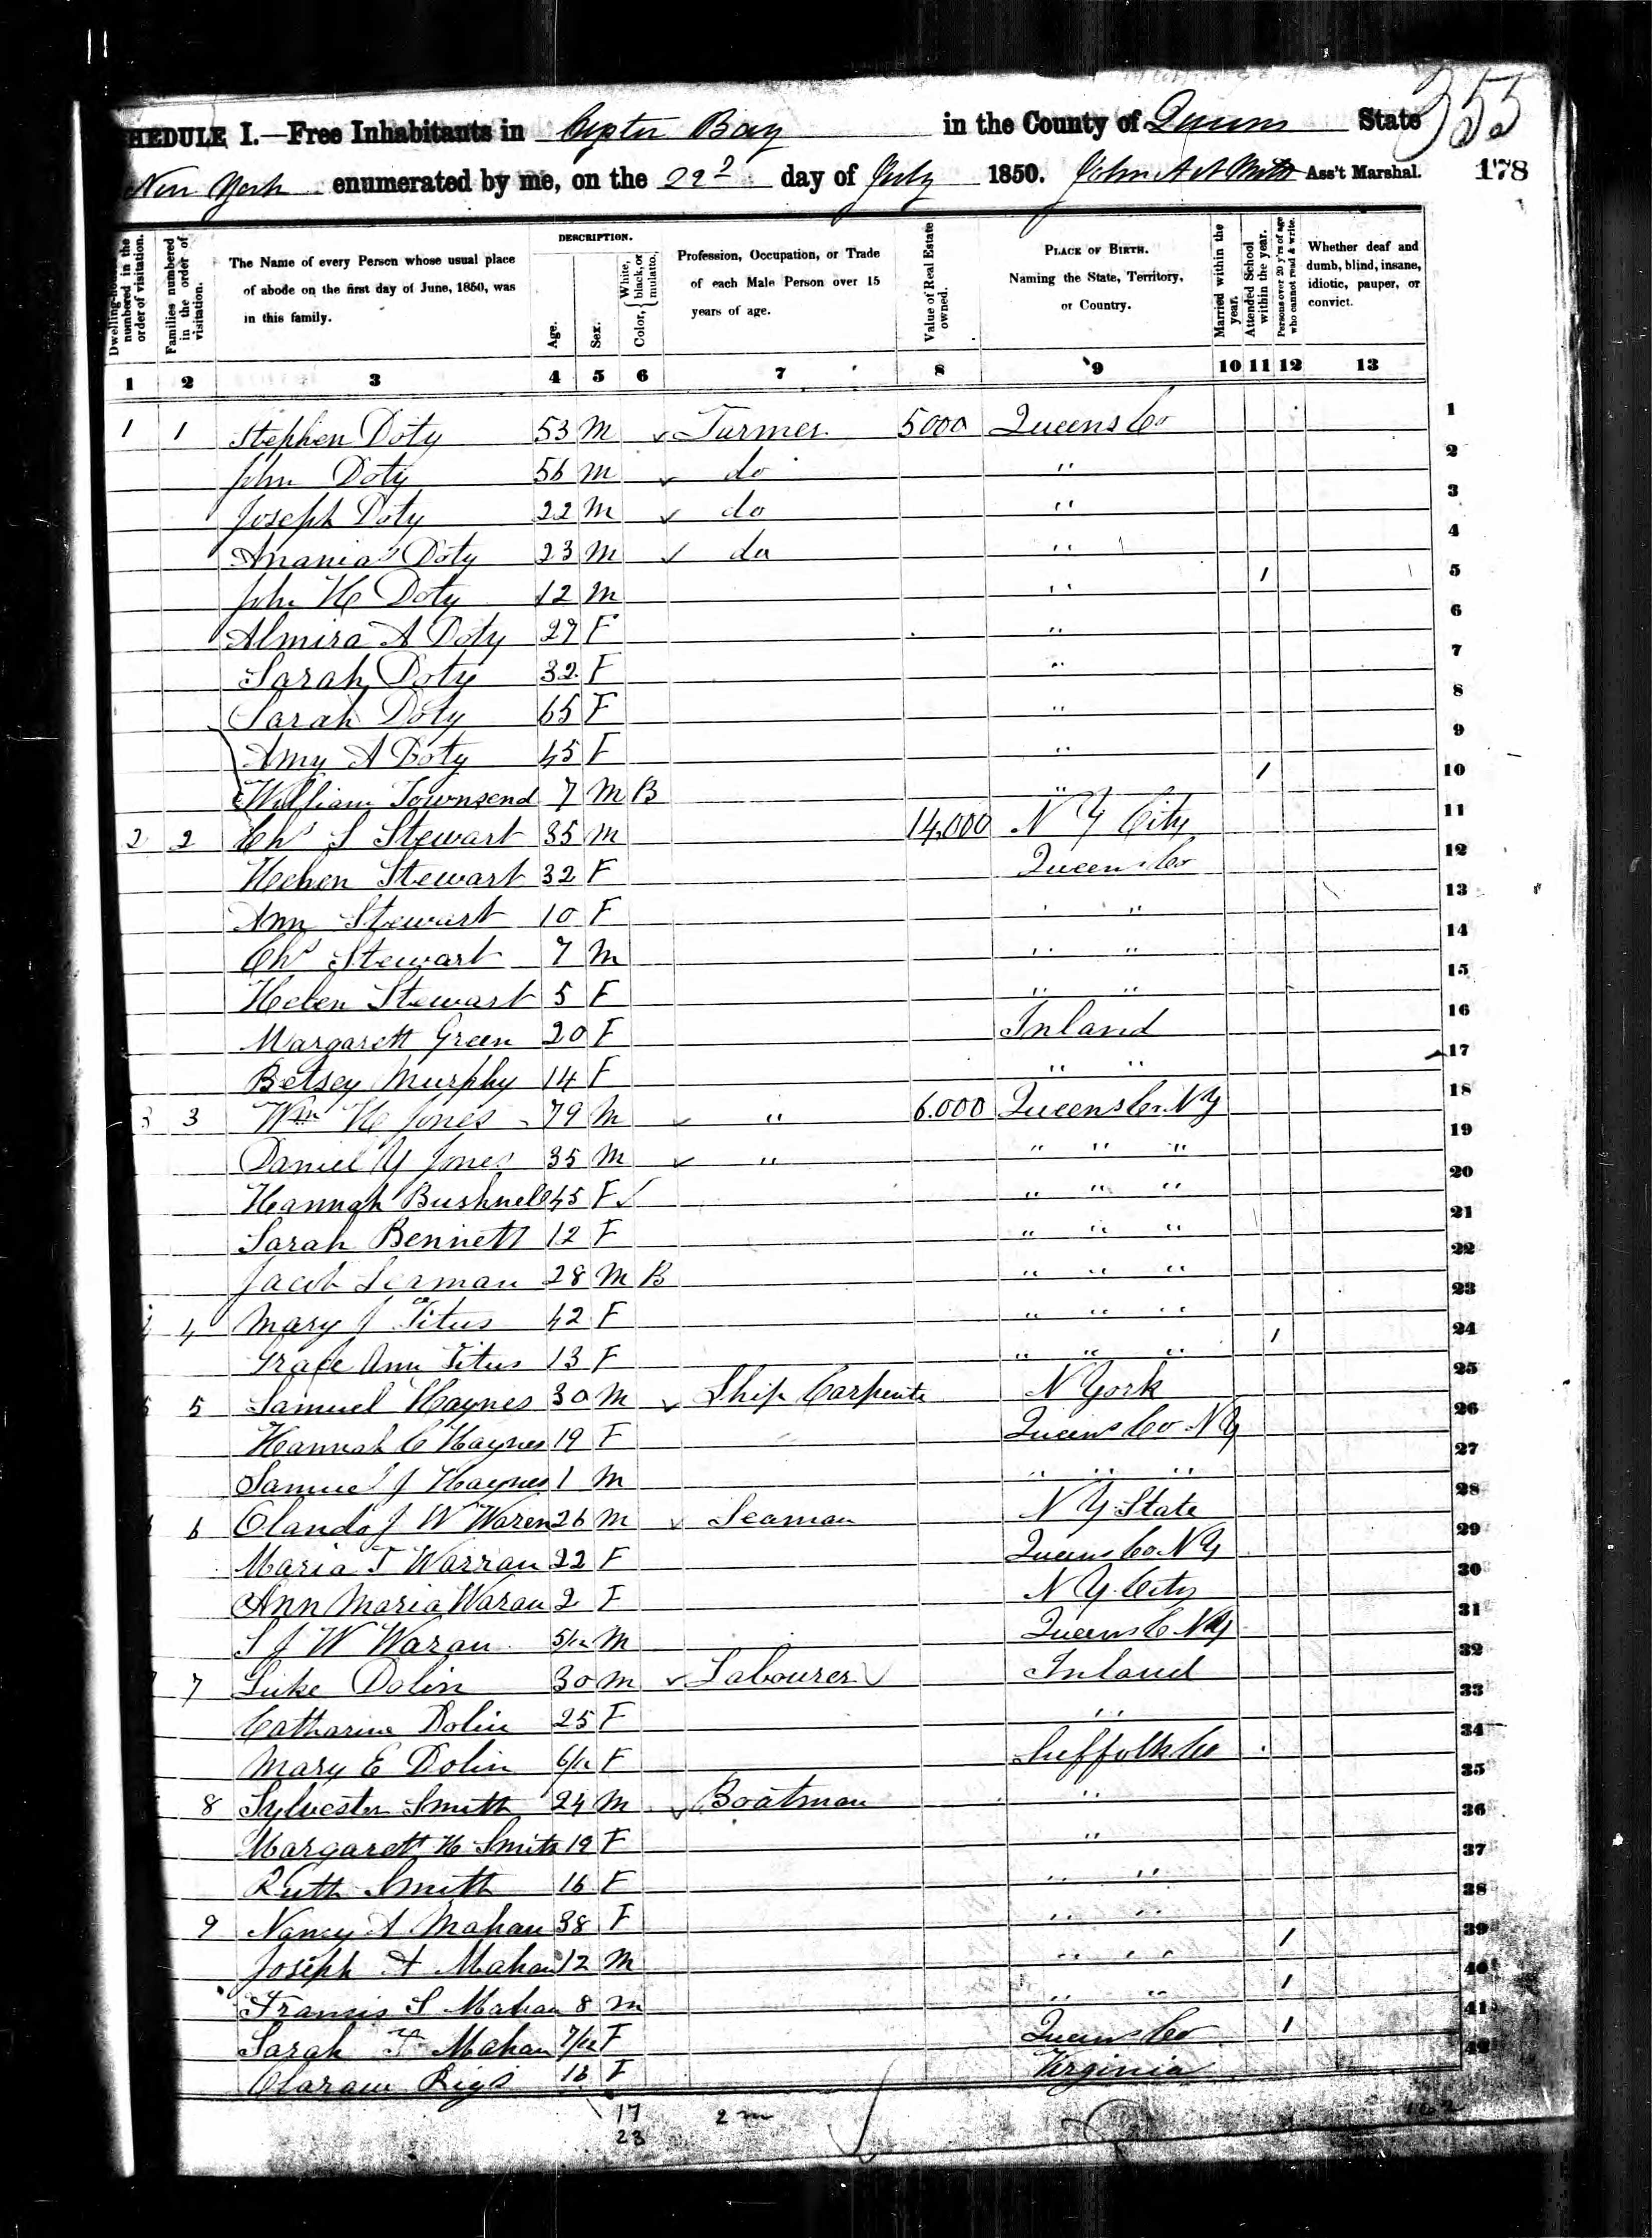 355
HEDULE I.—Free Inhabitants in Oyster Bay in the County of Queens State
New York enumerated by me, on the 22d day of July 1850. John A Smith Ass't Marshal. 178
Dwelling-houses numbered in the order of visitation. Families numbered in the order of visitation. The Name of every Person whose usual place of abode on the first day of June, 1850, was in this family. DESCRIPTION. Age. Sex. Color, White, black, or mulatto. Profession, Occupation, or Trade of each Male Person over 15 years of age. Value of Real Estate owned. PLACE OF BIRTH. Naming the State, Territory, or Country. Married within the year. Attended School within the year. Persons over 20 y'rs of age who cannot read & write. Whether deaf and dumb, blind, insane, idiotic, pauper, or convict.
1 2 3 4 5 6 7 8 9 10 11 12 13
1 1 Stephen Doty 53 M Farmer 5000 Queens Co 1
John Doty 56 M do " 2
Joseph Doty 22 M do " 3
Ananias Doty 23 M do " 4
John H Doty 12 M " 1 5
Almira A Doty 27 F " 6
Sarah Doty 32 F " 7
Sarah Doty 65 F " 8
Amy A Doty 45 F " 9
William Townsend 7 M B " 1 10
2 2 Chs S Stewart 35 M 14.000 N Y City 11
Helen Stewart 32 F Queens Co 12
Ann Stewart 10 F " " 13
Chs Stewart 7 M " " 14
Helen Stewart 5 F " " 15
Margarett Green 20 F Irland 16
Betsey Murphy 14 F " " 17
3 3 Wm H Jones 79 M " 6.000 Queens Co. N Y 18
Daniel Y Jones 35 M " " " " 19
Hannah Bushnell 45 F " " " 20
Sarah Bennett 12 F " " " 21
Jacob Seaman 28 M B " " " 22
4 Mary J Titus 42 F " " " 23
Grace Ann Titus 13 F " " " 1 24
5 5 Samuel Haynes 30 M Ship Carpente N York 25
Hannah C Haynes 19 F Queens Co N Y 26
Samuel J Haynes 1 M " " " 27
6 Olando J W Waren 26 M Seaman N Y State 28
Maria T Warran 22 F Queens Co N Y 29
Ann Maria Waran 2 F N Y City 30
S J W Waran 5/12 M Queens C NY 31
7 Luke Dolin 30 M Labourer Irland 32
Catharine Dolin 25 F " 33
Mary E Dolin 6/12 F Suffolk Co 34
8 Sylvester Smith 24 M Boatman " 35
Margarett H Smith 19 F " 36
Ruth Smith 16 F " " 37
9 Nancy A Mahan 38 F " " 38
Joseph A Mahan 12 M " " 1 39
Francis S Mahan 8 M " " 1 40
Sarah F Mahan 7/12 F Queens Co 1 41
Rigs 16 F Virginia 42
17 2 m
23